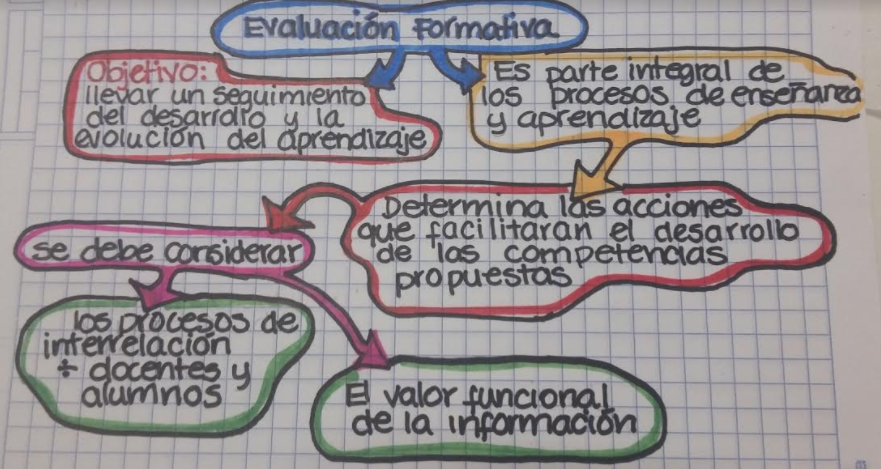 Evaluación Formativa
Objetivo:
llevar un seguimiento
del desarrollo y la
evolución del aprendizaje
Es parte integral de
los procesos de enseñanza
y aprendizaje
Determina las acciones
que facilitaran el desarrollo
de las competencias
propuestas
se debe considerar
los procesos de
interrelación
÷ docentes y
alumnos
El valor funcional
de la información